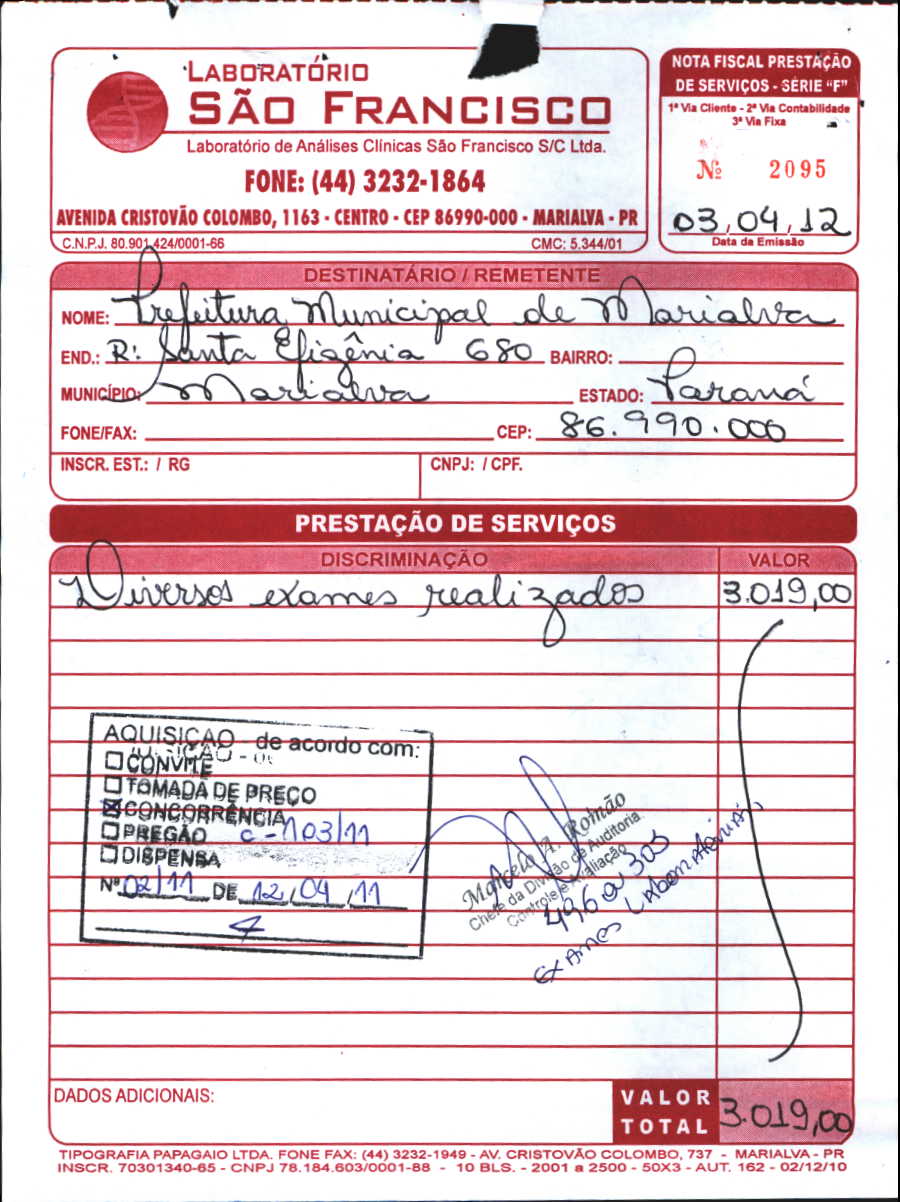 LABORATÓRIO
SÃO FRANCISCO
Laboratório de Análises Clínicas São Francisco S/C Ltda.
FONE: (44) 3232-1864
AVENIDA CRISTOVÃO COLOMBO, 1163 - CENTRO - CEP 86990-000 - MARIALVA - PR
C.N.P.J. 80.901.424/0001-66 CMC: 5.344/01
NOTA FISCAL PRESTAÇÃO
DE SERVIÇOS - SÉRIE “F”
1ª Via Cliente - 2ª Via Contabilidade
3ª Via Fixa
Nº 2095
03,04,12
Data da Emissão
DESTINATÁRIO / REMETENTE
NOME: Prefeitura Municipal de Marialva
END.: R: Santa Efigênia 680 BAIRRO:
MUNICÍPIO: Marialva ESTADO: Paraná
FONE/FAX: CEP: 86.990.000
INSCR. EST.: / RG CNPJ: / CPF.
PRESTAÇÃO DE SERVIÇOS
DISCRIMINAÇÃO VALOR
Diversos exames realizados 3.019,00
AQUISIÇÃO - de acordo com:
CONVITE
TOMADA DE PREÇO
CONCORRÊNCIA
PREGÃO c-103/11
DISPENSA
Nº 02/11 DE 12,04,11
Marcela A. Romão
Chefe da Divisão de Auditoria
Controle e Avaliação
496 a 305
Exames Laboratoriais
DADOS ADICIONAIS:
VALOR TOTAL 3.019,00
TIPOGRAFIA PAPAGAIO LTDA. FONE FAX: (44) 3232-1949 - AV. CRISTOVÃO COLOMBO, 737 - MARIALVA - PR
INSCR. 70301340-65 - CNPJ 78.184.603/0001-88 - 10 BLS. - 2001 a 2500 - 50X3 - AUT. 162 - 02/12/10